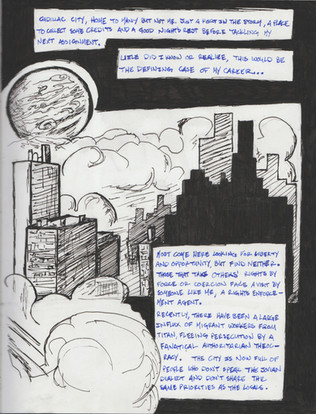 CADILLAC CITY, HOME TO MANY BUT NOT ME. JUST A PORT IN THE STORM, A PLACE
TO COLLECT SOME CREDITS AND A GOOD NIGHT'S REST BEFORE TACKLING MY
NEXT ASSIGNMENT.
LITTLE DID I KNOW OR REALIZE, THIS WOULD BE
THE DEFINING CASE OF MY CAREER...
MOST COME HERE LOOKING FOR LIBERTY
AND OPPORTUNITY, BUT FIND NEITHER.
THOSE THAT TAKE OTHERS' RIGHTS BY
FORCE OR COERCION FACE A VISIT BY
SOMEONE LIKE ME, A RIGHTS ENFORCE-
MENT AGENT.
RECENTLY, THERE HAVE BEEN A LARGE
INFLUX OF MIGRANT WORKERS FROM
TITAN, FLEEING PERSECUTION BY A
FANATICAL AUTHORITARIAN THEOC-
RACY. THE CITY IS NOW FULL OF
PEOPLE WHO DON'T SPEAK THE JOVIAN
DIALECT AND DON'T SHARE THE
SAME PRIORITIES AS THE LOCALS.